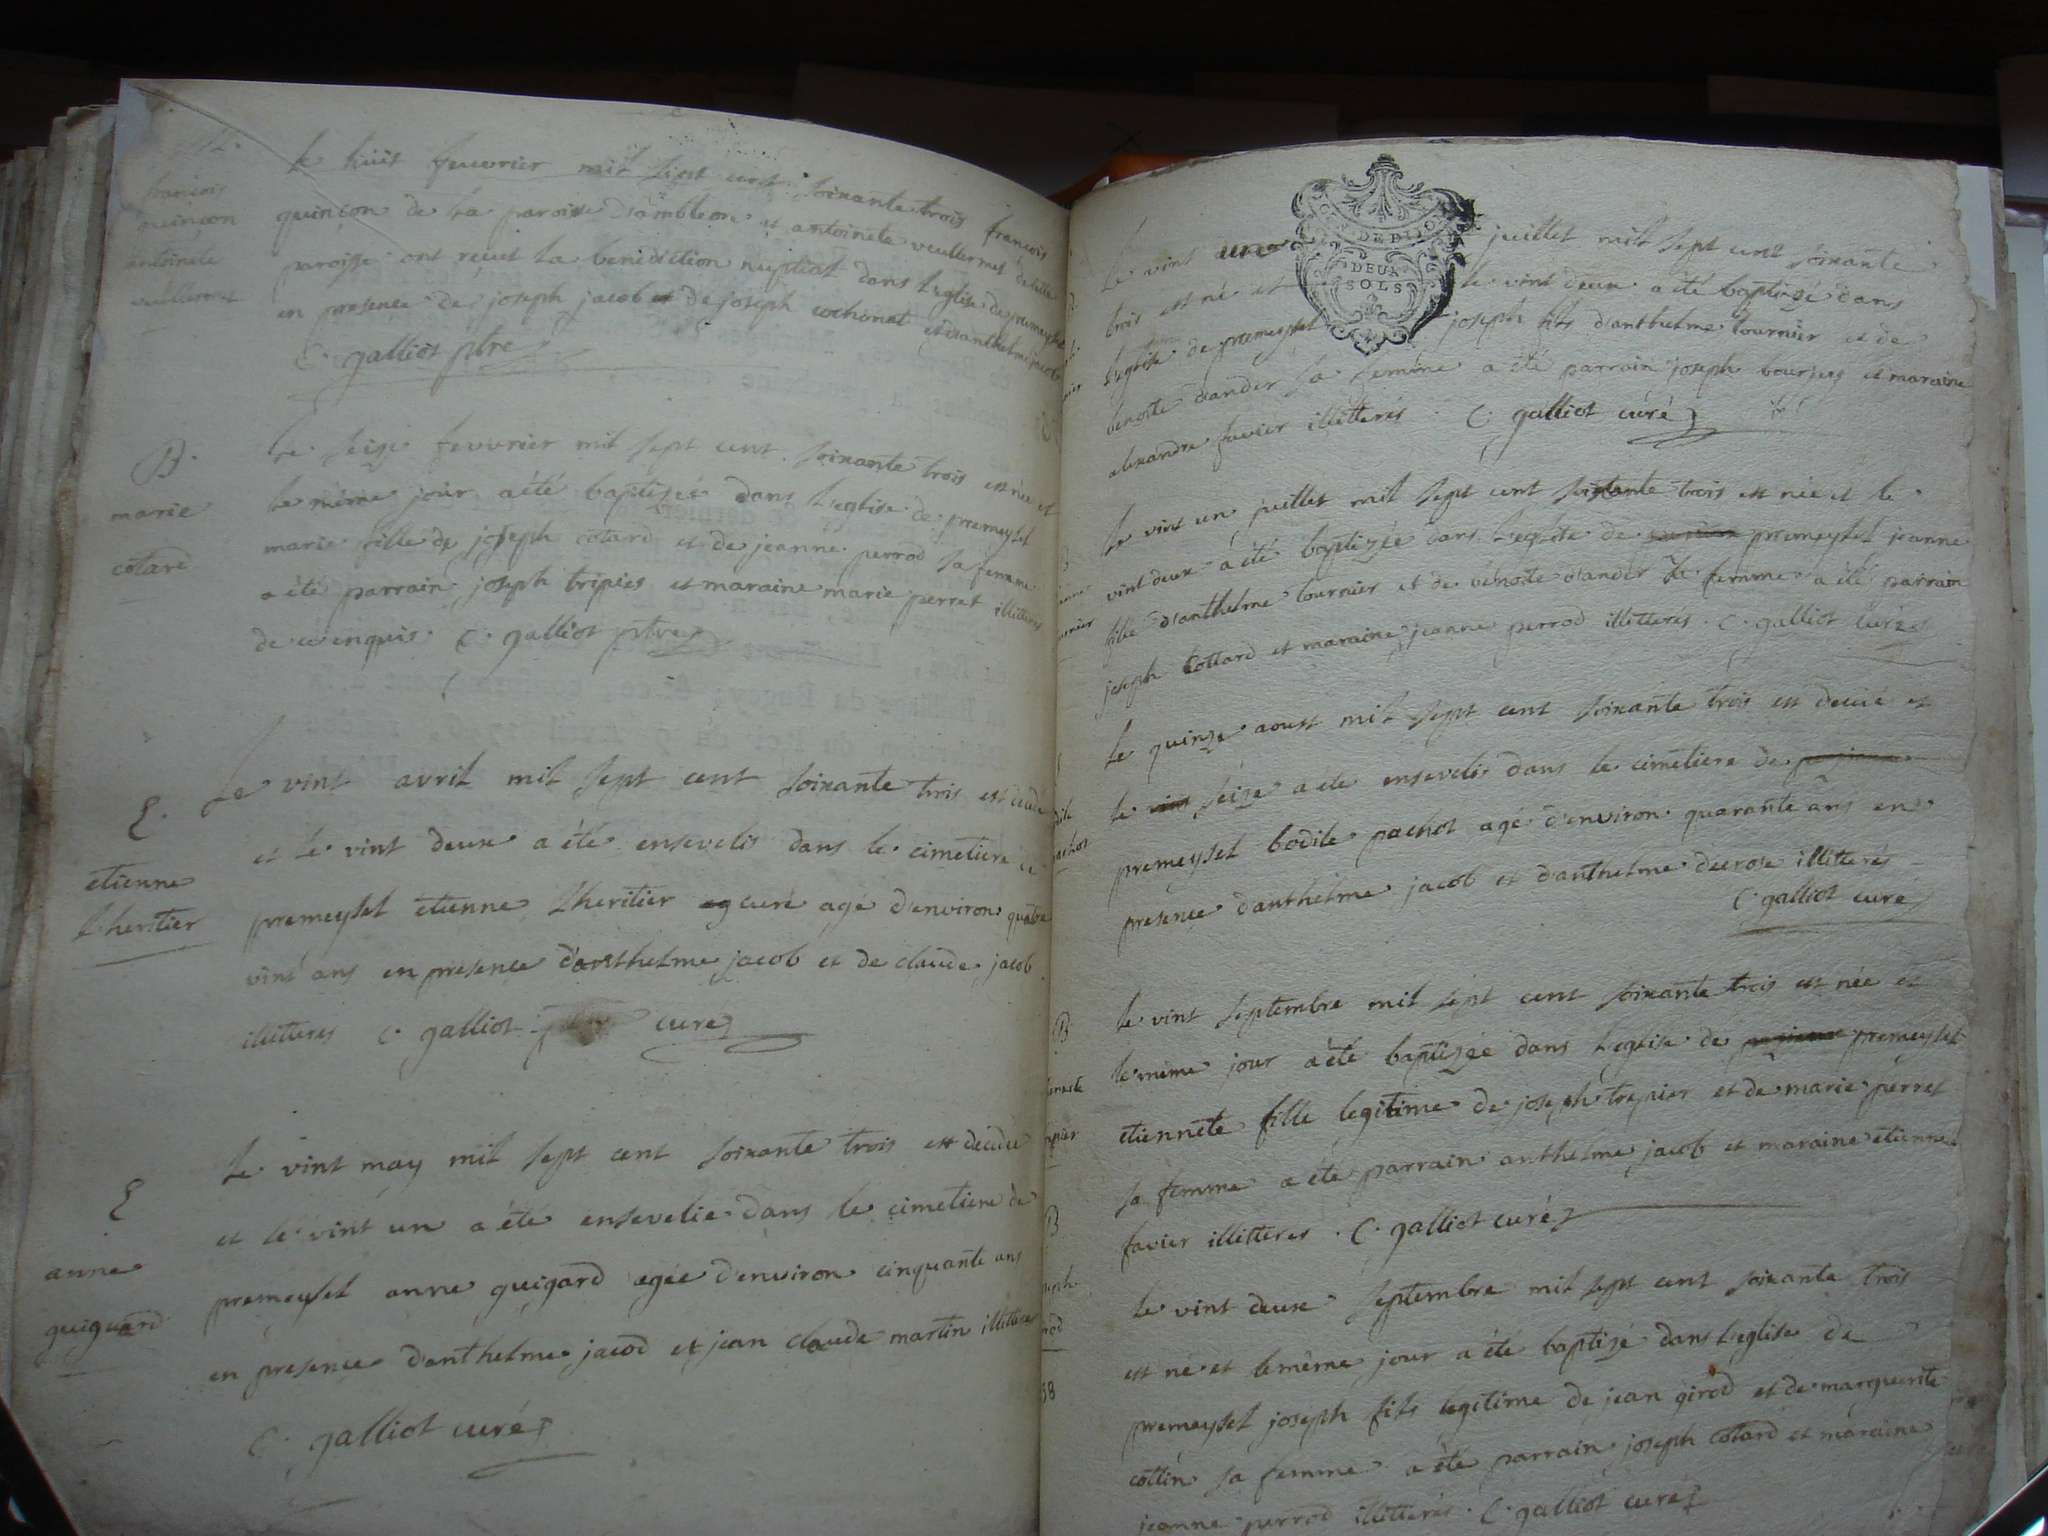 M.
françois
quinçon
antoinete
veulleremet
Le huit feuvrier mil sept cent soixante trois françois
quinçon de la paroisse d'ambleon et antoinete veullermet de cette
paroisse ont réçut la benediction nuptiale dans l'eglise de premeyset
en presence de joseph jacob et de joseph cochonat et d'anthelme jacob
C. galliot ptre
B.
marie
cotard
Le seize feuvrier mil sept cent soixante trois est née et
le même jour a été baptizée dans l'eglise de premeyset
marie fille de joseph cotard et de jeanne perrod sa femme
a été parrain joseph tripier et maraine marie perret illitterés
de ce enquis. C. galliot ptre
E.
etienne
Lheritier
Le vint avril mil sept cent soixante trois est décédé
et le vint deux a été ensevelis dans le cimetiere de
premeyset étienne Lheritier curé agé d'environ quatre
vint ans en presence d'anthelme jacob et de claude jacob
illitteres C. galliot curé
E
anne
guiguard
Le vint may mil sept cent soixante trois est décédée
et le vint un a été ensevelie dans le cimetiere de
premeyset anne guigard agée d'environ cinquante ans
en presence d'anthelme jacod et jean claude martin illitteres
C. galliot curé
Le vint une juillet mil sept cent soixante
DE DIJON
DEUX
SOLS
trois est né et le vint deux a été baptizé dans
l'eglise de premeyset joseph fils d'anthelme tournier et de
benoite dander sa femme a été parrain joseph bourgey et maraine
alexandre favier illitterés. C. galliot curé
Le vint un juillet mil sept cent soixante trois est née et le
vint deux a été baptizée dans l'eglise de premeyset jeanne
fille d'anthelme tournier et de benoite dander sa femme a été parrain
joseph Cottard et maraine jeanne perrod illitterés. C. galliot curé
Le quinze aoust mil sept cent soixante trois est decédé et
le seize a été ensevelis dans le cimetiere de
premeyset bodile pachot agé d'environ quarante ans en
presence d'anthelme jacob et d'anthelme decrose illitterés
C. galliot curé
B
Le vint septembre mil sept cent soixante trois est née et
le même jour a été baptizée dans l'eglise de premeyset
etiennete fille legitime de joseph trepier et de marie perret
sa femme a été parrain anthelme jacob et maraine etiennete
favier illitteres. C. galliot curé
B
Le vint deux septembre mil sept cent soixante trois
est né et le même jour a été baptizé dans l'eglise de
premeyset joseph fils legitime de jean girod et de marguerite
cottin sa femme a été parrain joseph cotard et maraine
jeanne perrod illitterés. C. galliot curé